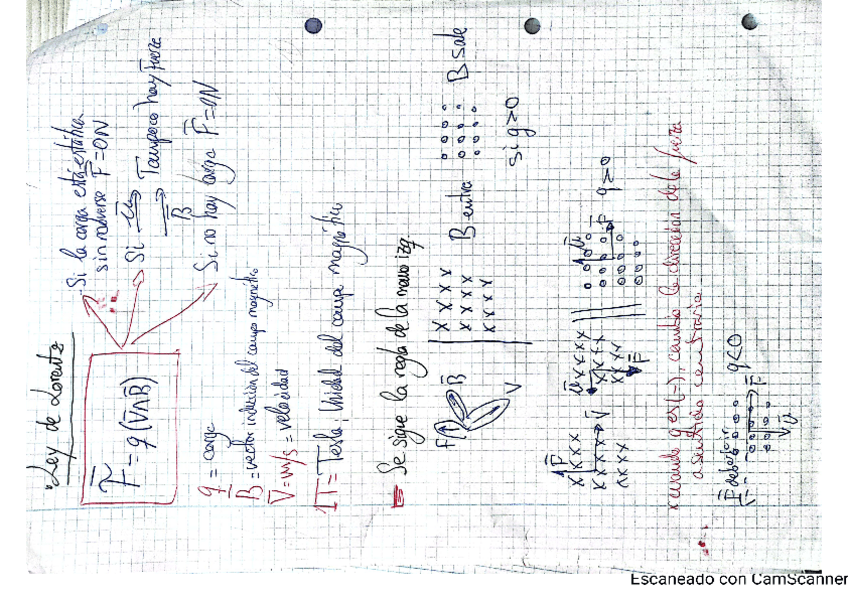 Ley de Lorentz
F = q (V∧B)
Si la carga está estática
sin moverse F=0N
Si
B
Tampoco hay fuerza
Si no hay carga F=0N
q = carga
B = vector inducción del campo magnético
V = m/s = velocidad
1T = Tesla Unidad del campo magnético
Se sigue la regla de la mano izq.
F
B
V
x x x x
x x x x
x x x x
B entra
B sale
si q>0
F
x x x x
x x x x V
x x x x
x x x x
x x x x
x x x x
F
F
q>0
x cuando q es (-), cambia la dirección de la fuerza
a sentido contrario
q<0
F
Escaneado con CamScanner